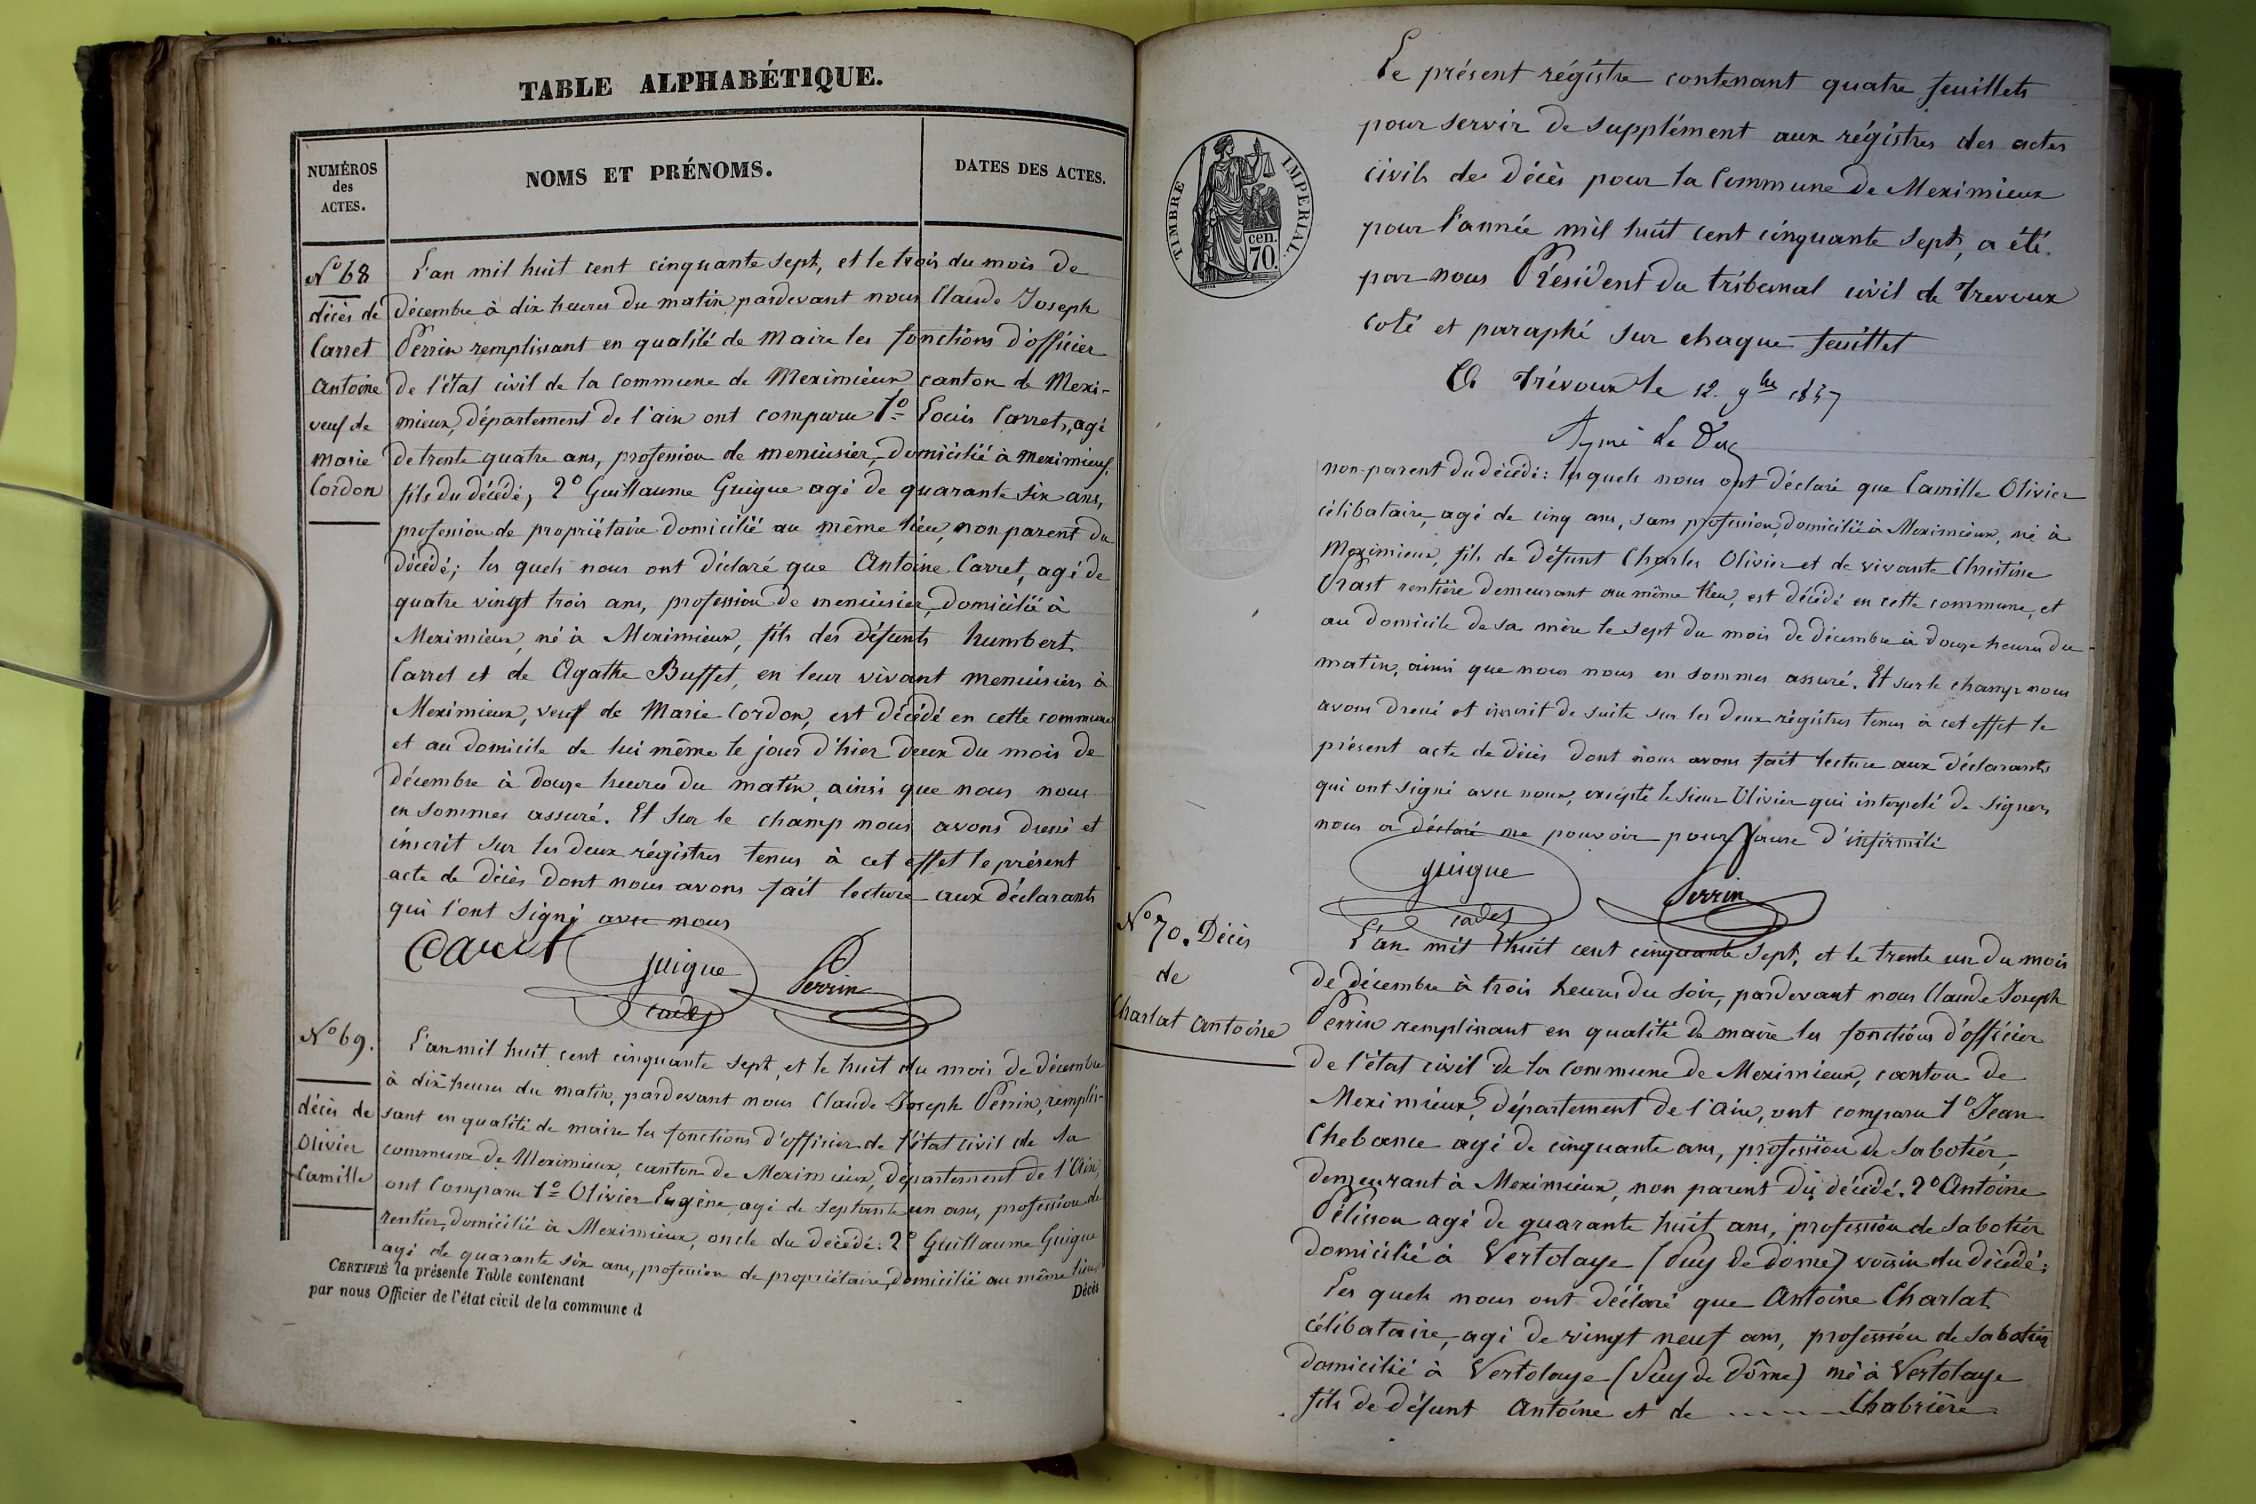 TABLE ALPHABÉTIQUE.
NUMÉROS
des
ACTES.
NOMS ET PRÉNOMS.
DATES DES ACTES.
N° 68
décès de
Carret
Antoine
veuf de
marie
Cordon
L'an mil huit cent cinquante sept, et le trois du mois de
décembre à dix heures du matin, pardevant nous Claude Joseph
Perrin remplissant en qualité de Maire les fonctions d'officier
de l'état civil de la commune de Meximieux canton de Mexi-
mieux, département de l'ain ont comparu 1° Louis Carret, agé
de trente quatre ans, profession de menuisier, domicilié à meximieux,
fils du décédé, 2° Guillaume Guigue agé de quarante six ans,
profession de propriétaire domicilié au même lieu, non parent du
décédé; les quels nous ont déclaré que Antoine Carret, agé de
quatre vingt trois ans, profession de menuisier, domicilié à
Meximieux, né à Meximieux, fils des défunts humbert
Carret et de Agathe Buffet, en leur vivant menuisiers à
Meximieux, veuf de Marie Cordon, est décédé en cette commune
et au domicile de lui même le jour d'hier deux du mois de
décembre à douze heures du matin, ainsi que nous nous
en sommes assuré. Et sur le champ nous avons dressé et
inscrit sur les deux régistres tenus à cet effet le présent
acte de décès dont nous avons fait lecture aux déclarants
qui l'ont signé avec nous
Carret guigue Perrin
N° 69.
décès de
Olivier
Camille
L'an mil huit cent cinquante sept, et le huit du mois de décembre
à dix heures du matin, pardevant nous Claude Joseph Perrin, remplis-
sant en qualité de maire les fonctions d'officier de l'état civil de la
commune de Meximieux, canton de Meximieux, département de l'Ain,
ont comparu 1° Olivier Eugène agé de septante un ans, profession de
rentier, domicilié à Meximieux, oncle du décédé: 2° Guillaume Guigue
agé de quarante six ans, profession de propriétaire, domicilié au même lieu
CERTIFIÉ la présente Table contenant
Décès
par nous Officier de l'état civil de la commune d
TIMBRE IMPERIAL
cen.
70.
Le présent régistre contenant quatre feuillets
pour servir de supplément aux régistres des actes
civils de décès pour la commune de Meximieux
pour l'année mil huit cent cinquante sept, a été
par nous Président du tribunal civil de Trevoux
coté et paraphé sur chaque feuillet
A Trévoux le 12. 9bre 1857
non-parent du décédé: les quels nous ont déclaré que Camille Olivier
célibataire, agé de cinq ans, sans profession, domicilié à Meximieux, né à
Meximieux, fils de défunt Charles Olivier et de vivante Christine
Crast rentière demeurant au même lieu, est décédé en cette commune, et
au domicile de sa mère le sept du mois de décembre à douze heures du
matin, ainsi que nous nous en sommes assuré. Et sur le champ nous
avons dressé et inscrit de suite sur les deux régistres tenus à cet effet le
présent acte de décès dont nous avons fait lecture aux déclarants
qui ont signé avec nous, excepté le sieur Olivier qui interpelé de signer,
nous a déclaré ne pouvoir pour cause d'infirmité
guigue Perrin
N° 70. Décès
de
Charlat Antoine
L'an mil huit cent cinquante sept, et le trente un du mois
de décembre à trois heures du soir, pardevant nous Claude Joseph
Perrin remplissant en qualité de maire les fonctions d'officier
de l'état civil de la commune de Meximieux, canton de
Meximieux, département de l'ain, ont comparu 1° Jean
Chebance agé de cinquante ans, profession de sabotier,
demeurant à Meximieux, non parent du décédé. 2° Antoine
Pélisson agé de quarante huit ans, profession de sabotier
domicilié à Vertolaye (Puy de dome) voisin du décédé:
Les quels nous ont déclaré que Antoine Charlat
célibataire, agé de vingt neuf ans, profession de sabotier
domicilié à Vertolaye (Puy de Dôme) né à Vertolaye
fils de défunt Antoine et de ..... Chabrière